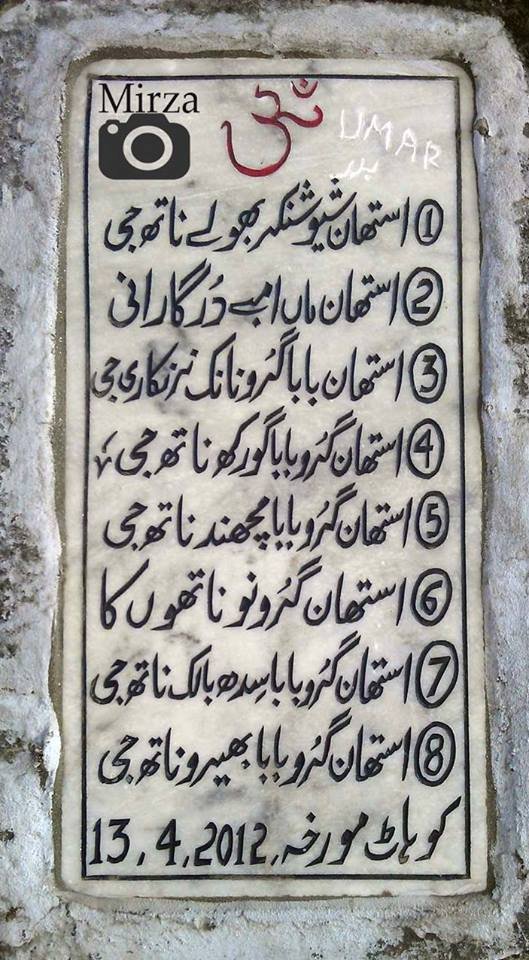 Mirza
ॐ
UMAR
بدر
① استھان شیو شنکر بھولے ناتھ جی
② استھان ماں امبے دُرگا رانی
③ استھان بابا گُرو نانک نرنکاری جی
④ استھان گُرو بابا گورکھ ناتھ جی
⑤ استھان گُرو بابا مچھندر ناتھ جی
⑥ استھان گُرو نو ناتھوں کا
⑦ استھان گُرو بابا سِدھ بالک ناتھ جی
⑧ استھان گُرو بابا بھیرو ناتھ جی
کوہاٹ مورخہ 13.4.2012